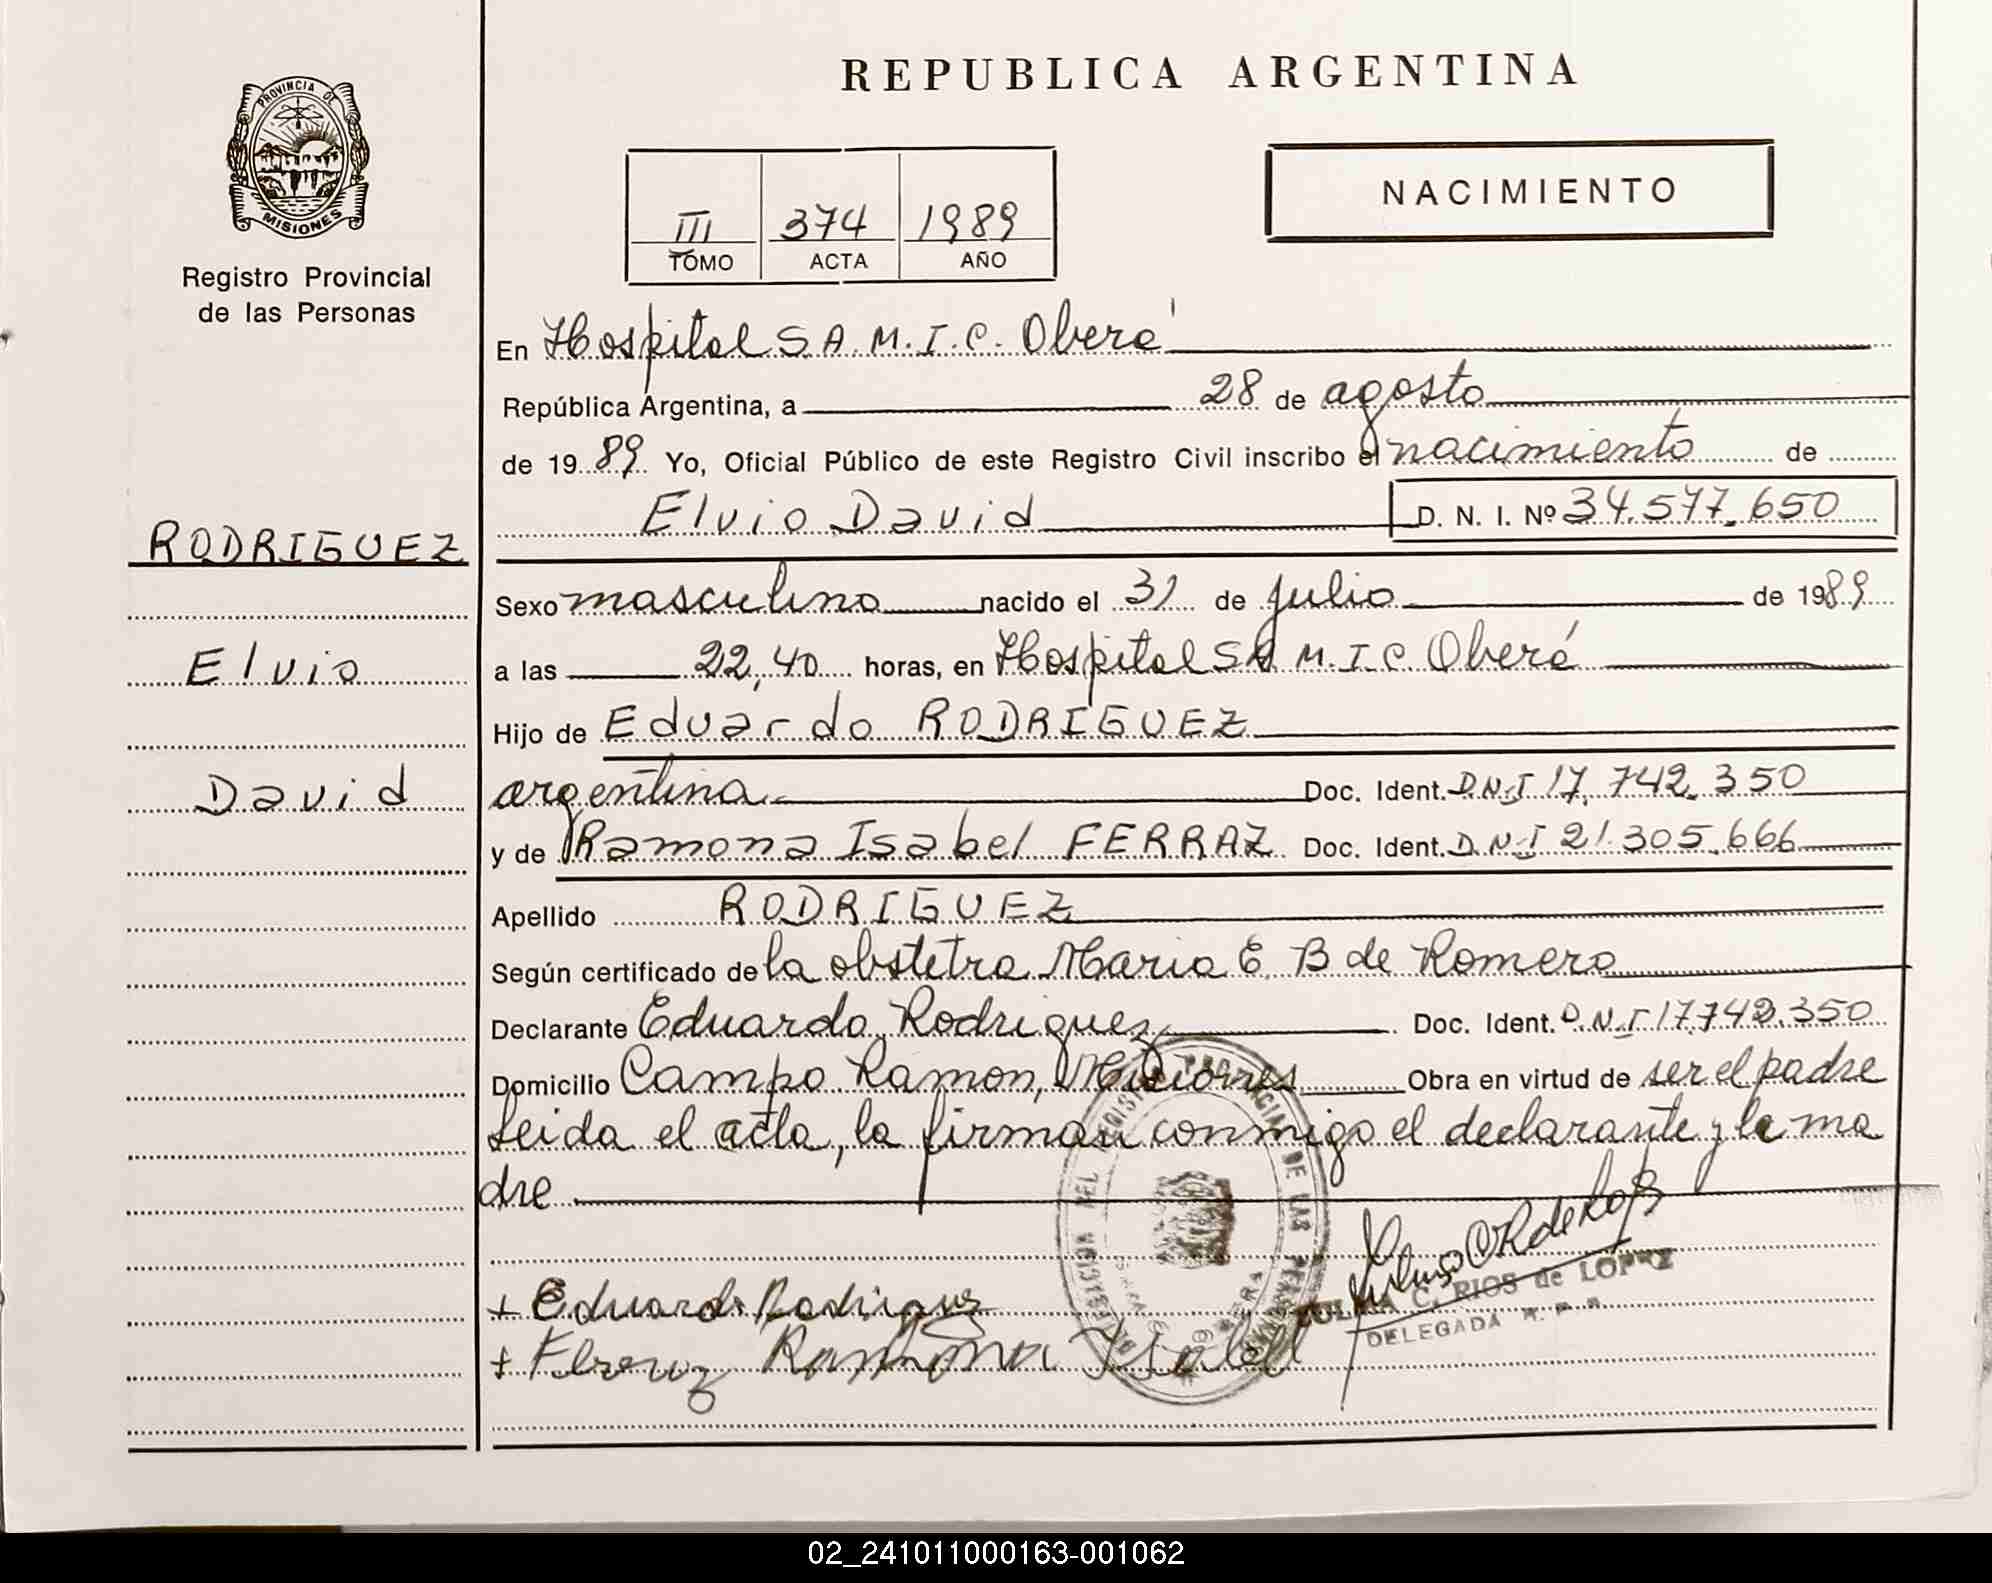 REPUBLICA ARGENTINA
PROVINCIA DE
MISIONES
Registro Provincial
de las Personas
III 374 1989
TOMO ACTA AÑO
NACIMIENTO
En Hospital S.A.M.I.C. Oberá
República Argentina, a 28 de agosto
de 1989 Yo, Oficial Público de este Registro Civil inscribo el nacimiento de
Elvio David D. N. I. Nº 34.577.650
RODRIGUEZ
Elvio
David
Sexo masculino nacido el 31 de julio de 1989
a las 22,40 horas, en Hospital S.A.M.I.C. Oberá
Hijo de Eduardo RODRIGUEZ
argentina Doc. Ident. D.N.I 17.742.350
y de Ramona Isabel FERRAZ Doc. Ident. D.N.I 21.305.666
Apellido RODRIGUEZ
Según certificado de la obstetra Maria E. B de Romero
Declarante Eduardo Rodriguez Doc. Ident. D.N.I 17.742.350
Domicilio Campo Ramon, Misiones Obra en virtud de ser el padre
Leida el acta, la firman conmigo el declarante y la ma
dre
+ Eduardo Rodriguez
+ Ramona Isabel
C. RIOS de LOPEZ
DELEGADA
02_241011000163-001062